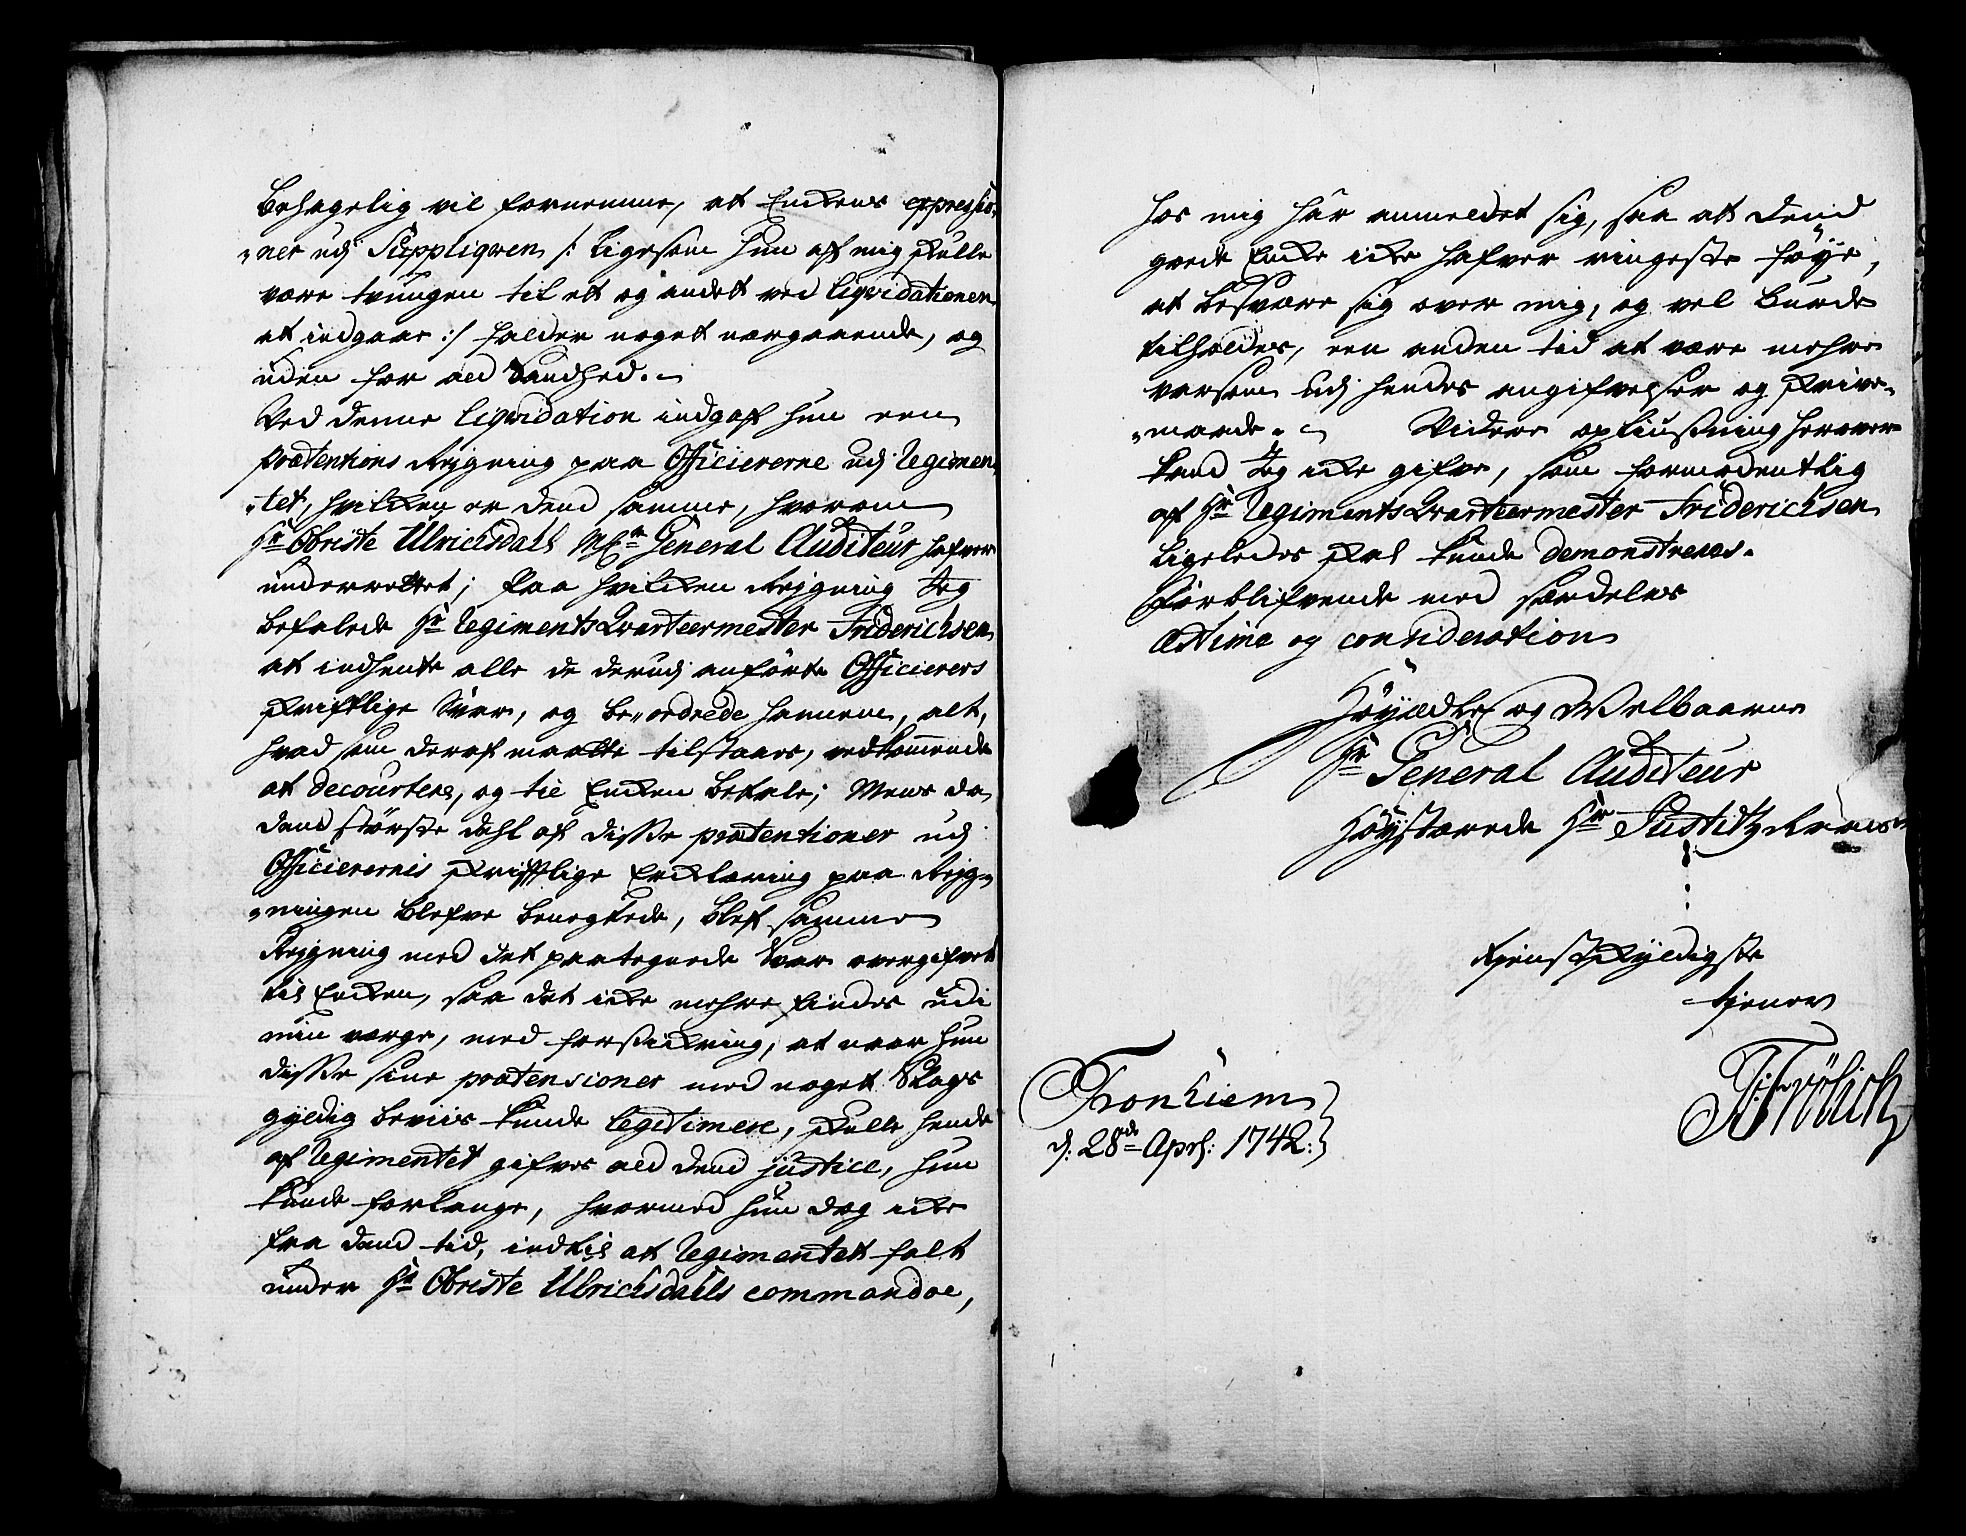 Behagelig vil fornemme, at Enckens expressio-
"ner udj Suppliqven /: ligesom hun af mig skulle
være tvungen til et og andet ved liqvidationen
at indgaae :/ falder noget nærgaaende, og
uden for ald Sandhed.
Ved denne liqvidation indgaf hun een
prætentions Reigning paa Officiererne udj Regimen-
"tet, hvilcken er dend samme, hvorom
Hr. Obriste Ulrichsdahl General Auditeur hafver
underrettet; Paa hvilcken Reigning Jeg
befalede Hr. RegimentsQvarteermester Friderichsen
at indhente alle de derudj anførte Officierers
skriftlige Svar, og be"ordrede hannem, alt,
hvad som deraf maatte tilstaaes, vedkommende
at decourtere, og til Encken betale; Mens da
dend største dehl af disse prætentioner udj
Officierernis skrifftlige Erklæring paa Reig-
"ningen blefve benegtede, blef samme
Reigning med det paategnede Svar overgifvet
til Encken, saa det icke mehre findes udi
min værge, med forsickring, at naar hun
disse sine prætensioner med noget Slags
gyldig beviis kunde legitimere, skulle hende
af Regimentet gifves ald dend justice, hun
kunde forlange, hvormed hun dog icke
fra dend tid, indtil at Regimentet falt
under Hr. Obriste Ulrichsdahls commandoe,
hos mig har anmeldet sig, saa at dend
gode Encke icke hafver ringeste føye,
at besvære sig over mig, og vel burde
tilholdes, een anden tid at være mehre
varsom udj hendes angifvelser og skrive-
"maade. Videre opliusning herover
kand Jeg icke gifve, som formodentlig
af Hr. RegimentsQvarteermester Friderichsen
ligeledes skal kunde demonstreres.
Forblifvende med særdeles
æstime og consideration
Høyædle og Welbaarne
Hr. General Auditeur
Høystærede Hr. Justitz Raads
tienstskyldigste
tiener
Frölich
Tronhiem
d: 28de April: 1742: